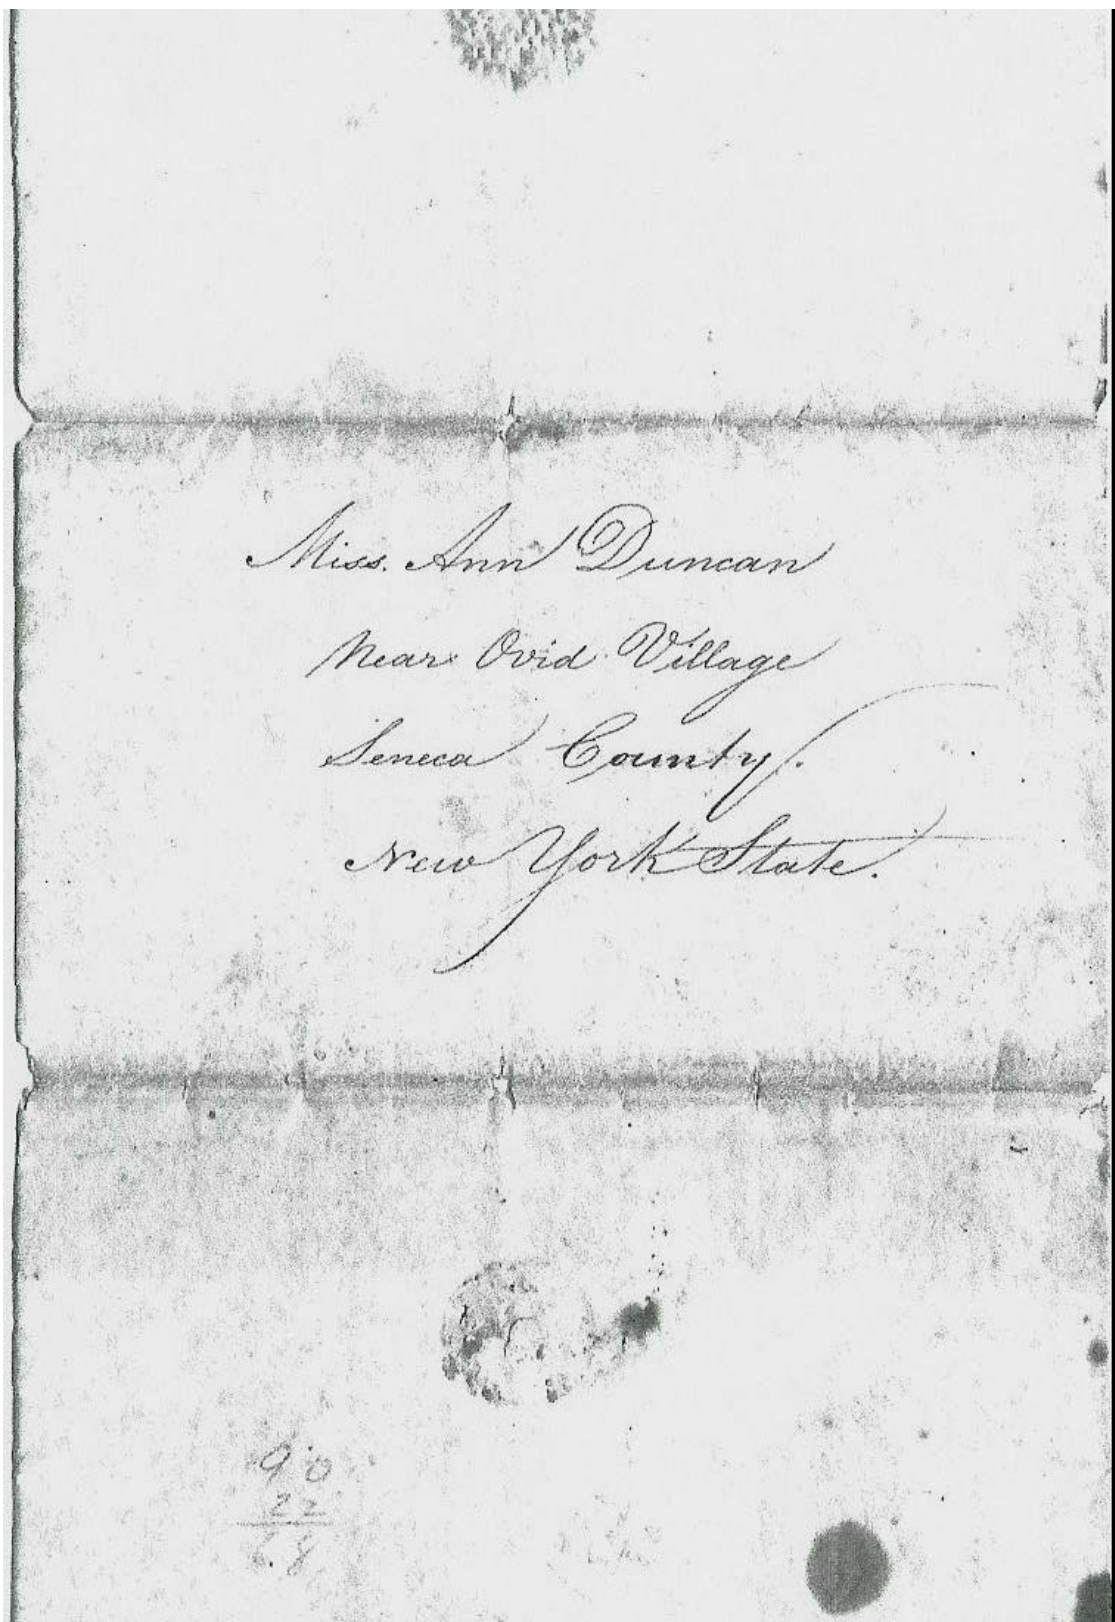 Miss. Ann Duncan
Near Ovid Village
Seneca County.
New York State.
90
22
68